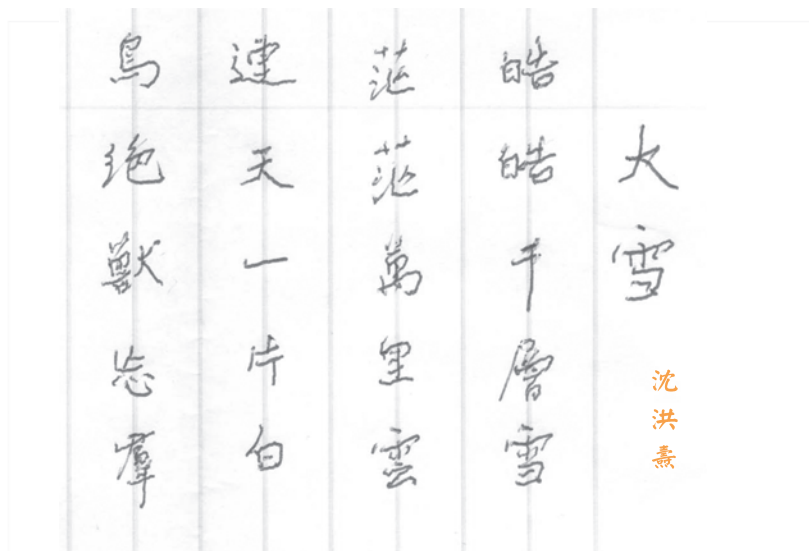 大雪
沈洪燾
皓皓千層雪
茫茫萬里雲
連天一片白
鳥絕獸忘羣